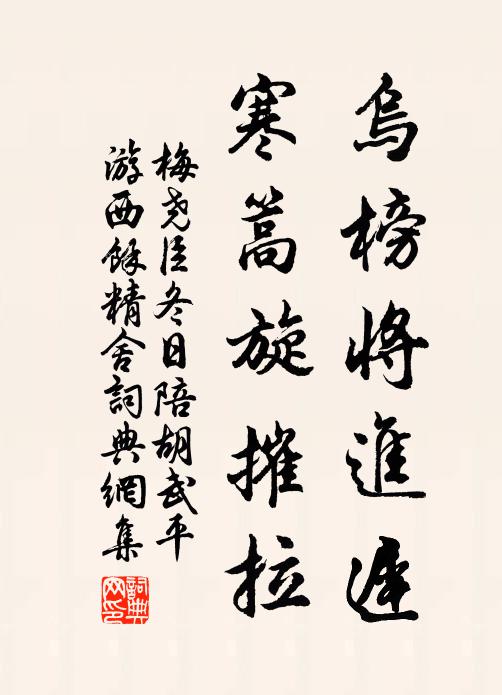 烏榜將進遲
寒篙旋摧拉
梅堯臣冬日陪胡武平
游西餘精舍詞典網集
詞典网印